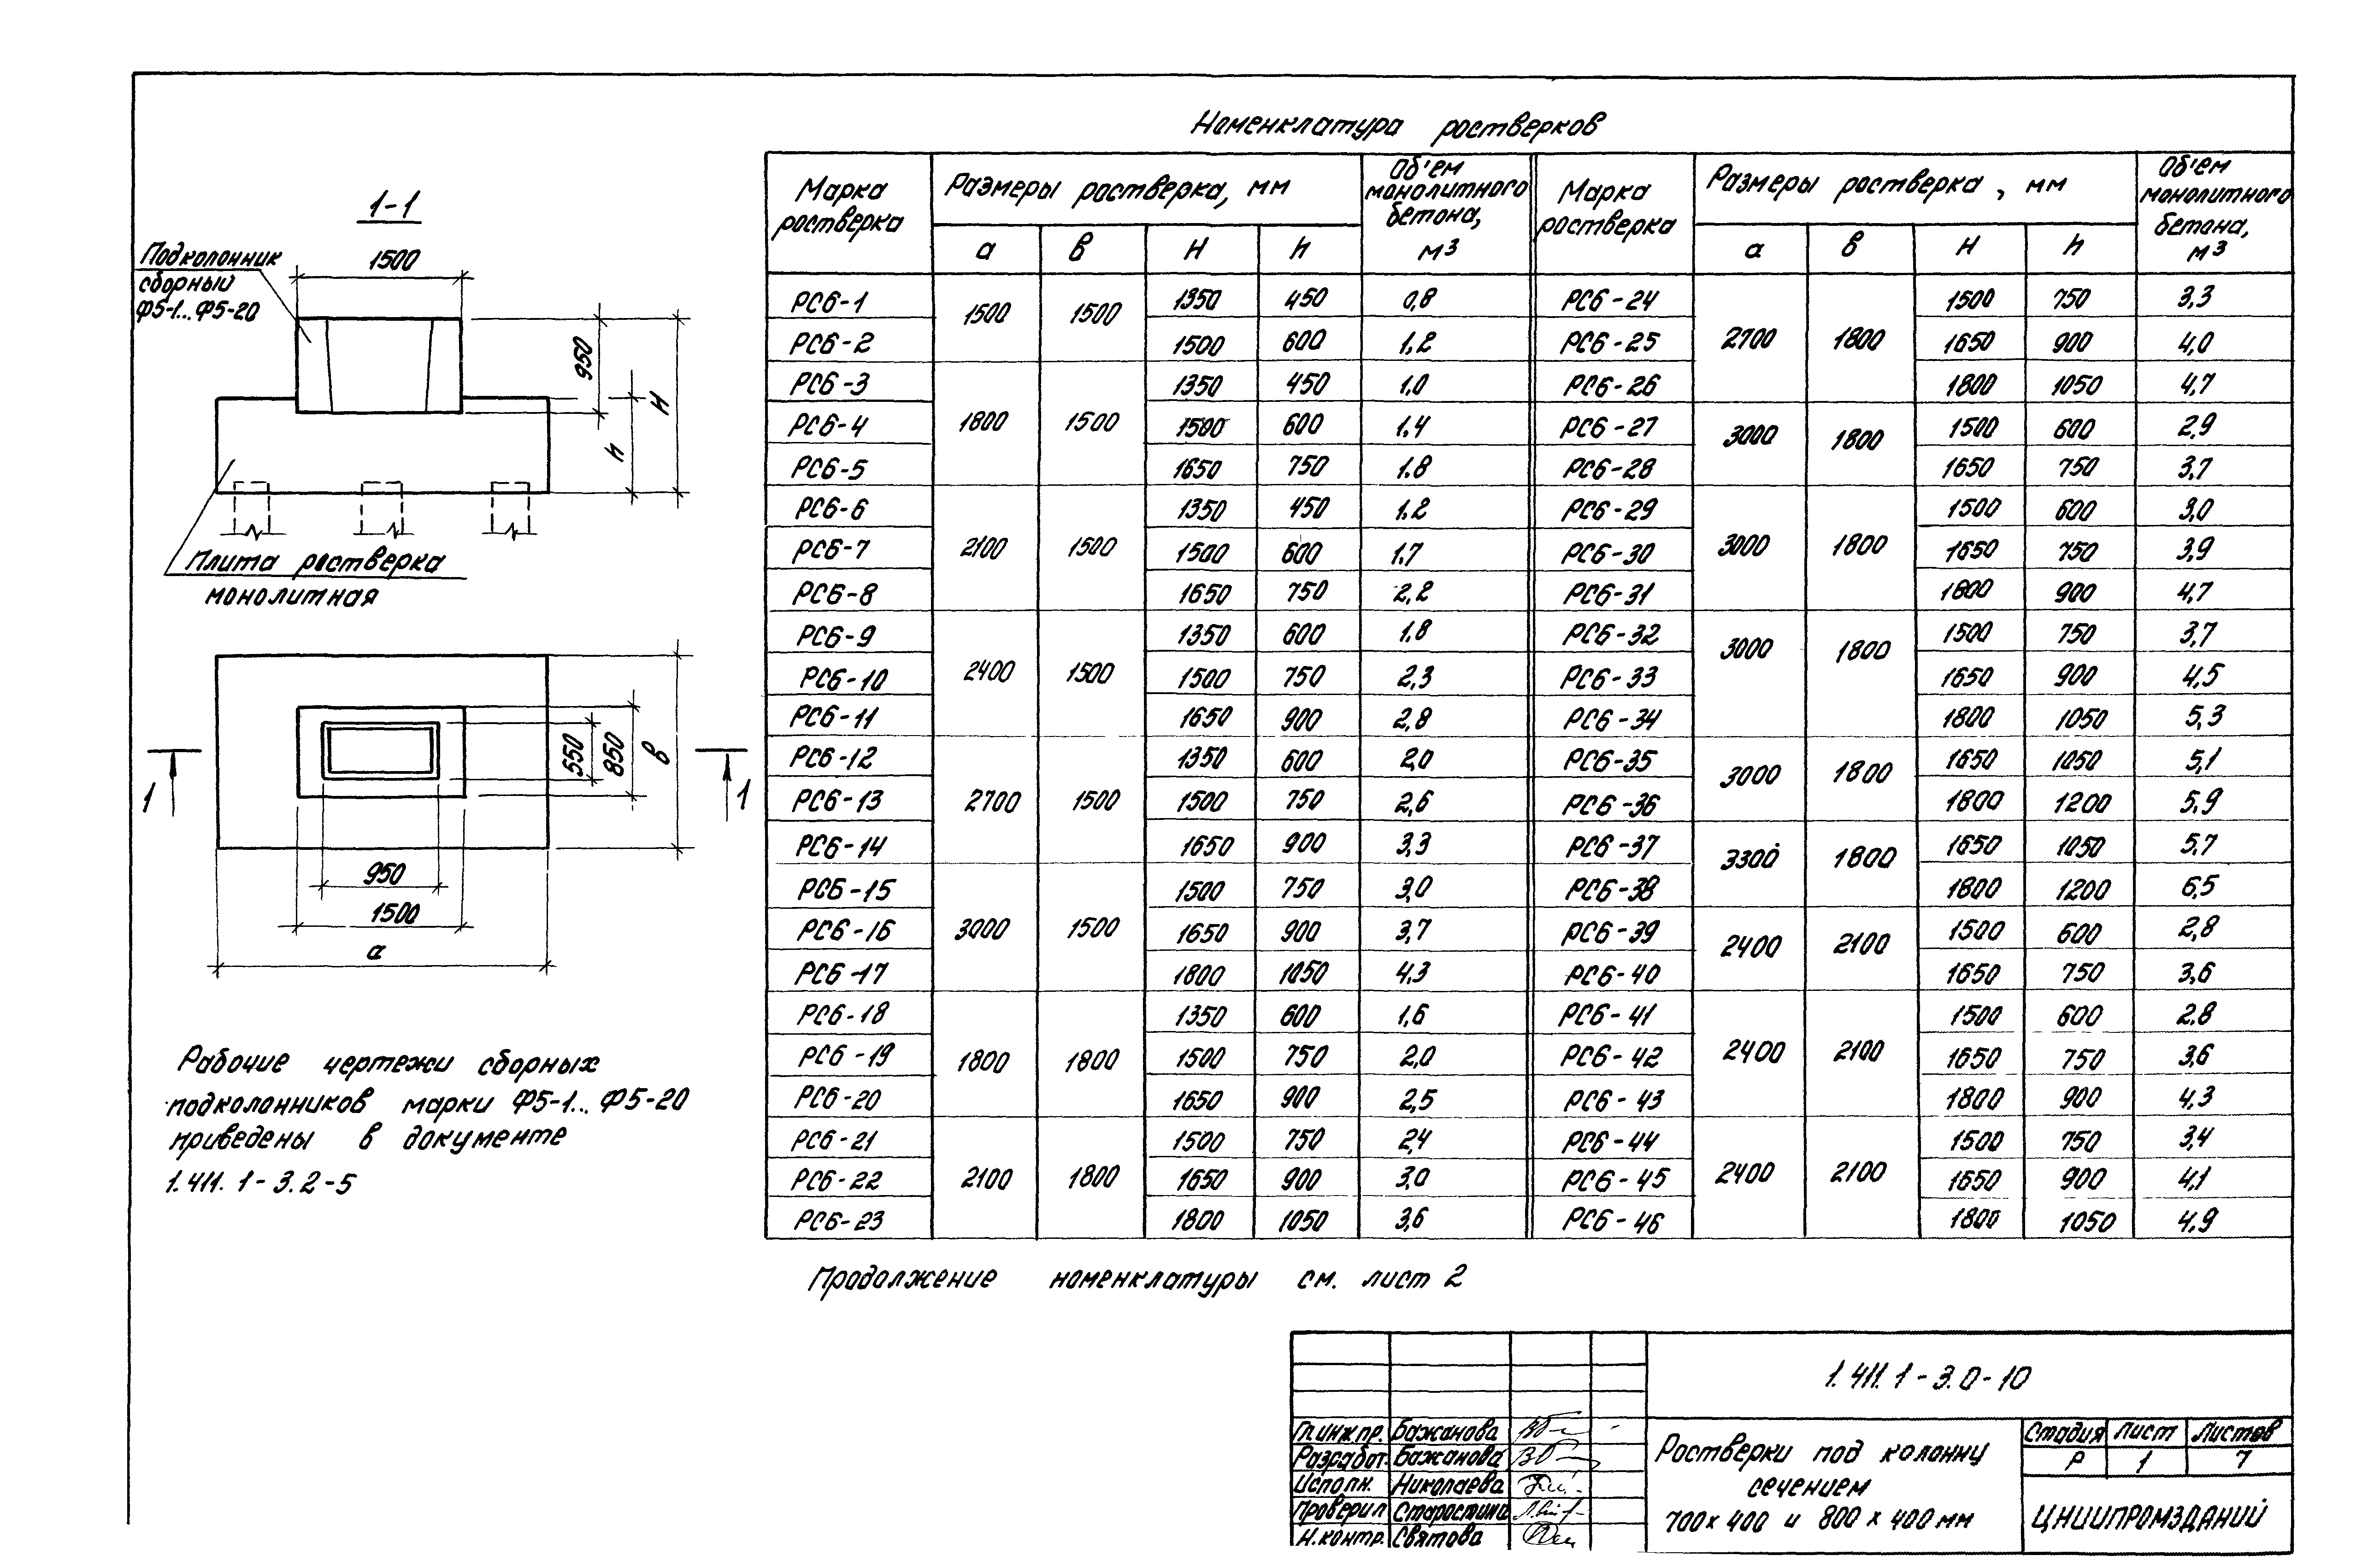 Номенклатура ростверков
1-1
1500
Подколонник
сборный
Ф5-1... Ф5-20
950
H
h
Плита ростверка
монолитная
550
850
в
1
1
950
1500
а
Рабочие чертежи сборных
подколонников марки Ф5-1... Ф5-20
приведены в документе
1.411.1-3.2-5
Марка ростверка | Размеры ростверка, мм | Об'ем монолитного бетона, м3 | Марка ростверка | Размеры ростверка, мм | Об'ем монолитного бетона, м3
а в H h а в H h
РС6-1 1500 1500 1350 450 0,8 РС6-24 2700 1800 1500 750 3,3
РС6-2 1500 600 1,2 РС6-25 1650 900 4,0
РС6-3 1800 1500 1350 450 1,0 РС6-26 1800 1050 4,7
РС6-4 1500 600 1,4 РС6-27 3000 1800 1500 600 2,9
РС6-5 1650 750 1,8 РС6-28 1650 750 3,7
РС6-6 2100 1500 1350 450 1,2 РС6-29 3000 1800 1500 600 3,0
РС6-7 1500 600 1,7 РС6-30 1650 750 3,9
РС6-8 1650 750 2,2 РС6-31 1800 900 4,7
РС6-9 2400 1500 1350 600 1,8 РС6-32 3000 1800 1500 750 3,7
РС6-10 1500 750 2,3 РС6-33 1650 900 4,5
РС6-11 1650 900 2,8 РС6-34 1800 1050 5,3
РС6-12 2700 1500 1350 600 2,0 РС6-35 3000 1800 1650 1050 5,1
РС6-13 1500 750 2,6 РС6-36 1800 1200 5,9
РС6-14 1650 900 3,3 РС6-37 3300 1800 1650 1050 5,7
РС6-15 3000 1500 1500 750 3,0 РС6-38 1800 1200 6,5
РС6-16 1650 900 3,7 РС6-39 2400 2100 1500 600 2,8
РС6-17 1800 1050 4,3 РС6-40 1650 750 3,6
РС6-18 1800 1800 1350 600 1,6 РС6-41 2400 2100 1500 600 2,8
РС6-19 1500 750 2,0 РС6-42 1650 750 3,6
РС6-20 1650 900 2,5 РС6-43 1800 900 4,3
РС6-21 2100 1800 1500 750 2,4 РС6-44 2400 2100 1500 750 3,4
РС6-22 1650 900 3,0 РС6-45 1650 900 4,1
РС6-23 1800 1050 3,6 РС6-46 1800 1050 4,9
Продолжение номенклатуры см. лист 2
1.411.1-3.0-10
Гл.инж.пр. Бажанова
Разработ. Бажанова
Исполн. Николаева
Проверил Старостина
Н.контр. Святова
Ростверки под колонну
сечением
700×400 и 800×400мм
Стадия Лист Листов
Р 1 7
ЦНИИПРОМЗДАНИЙ